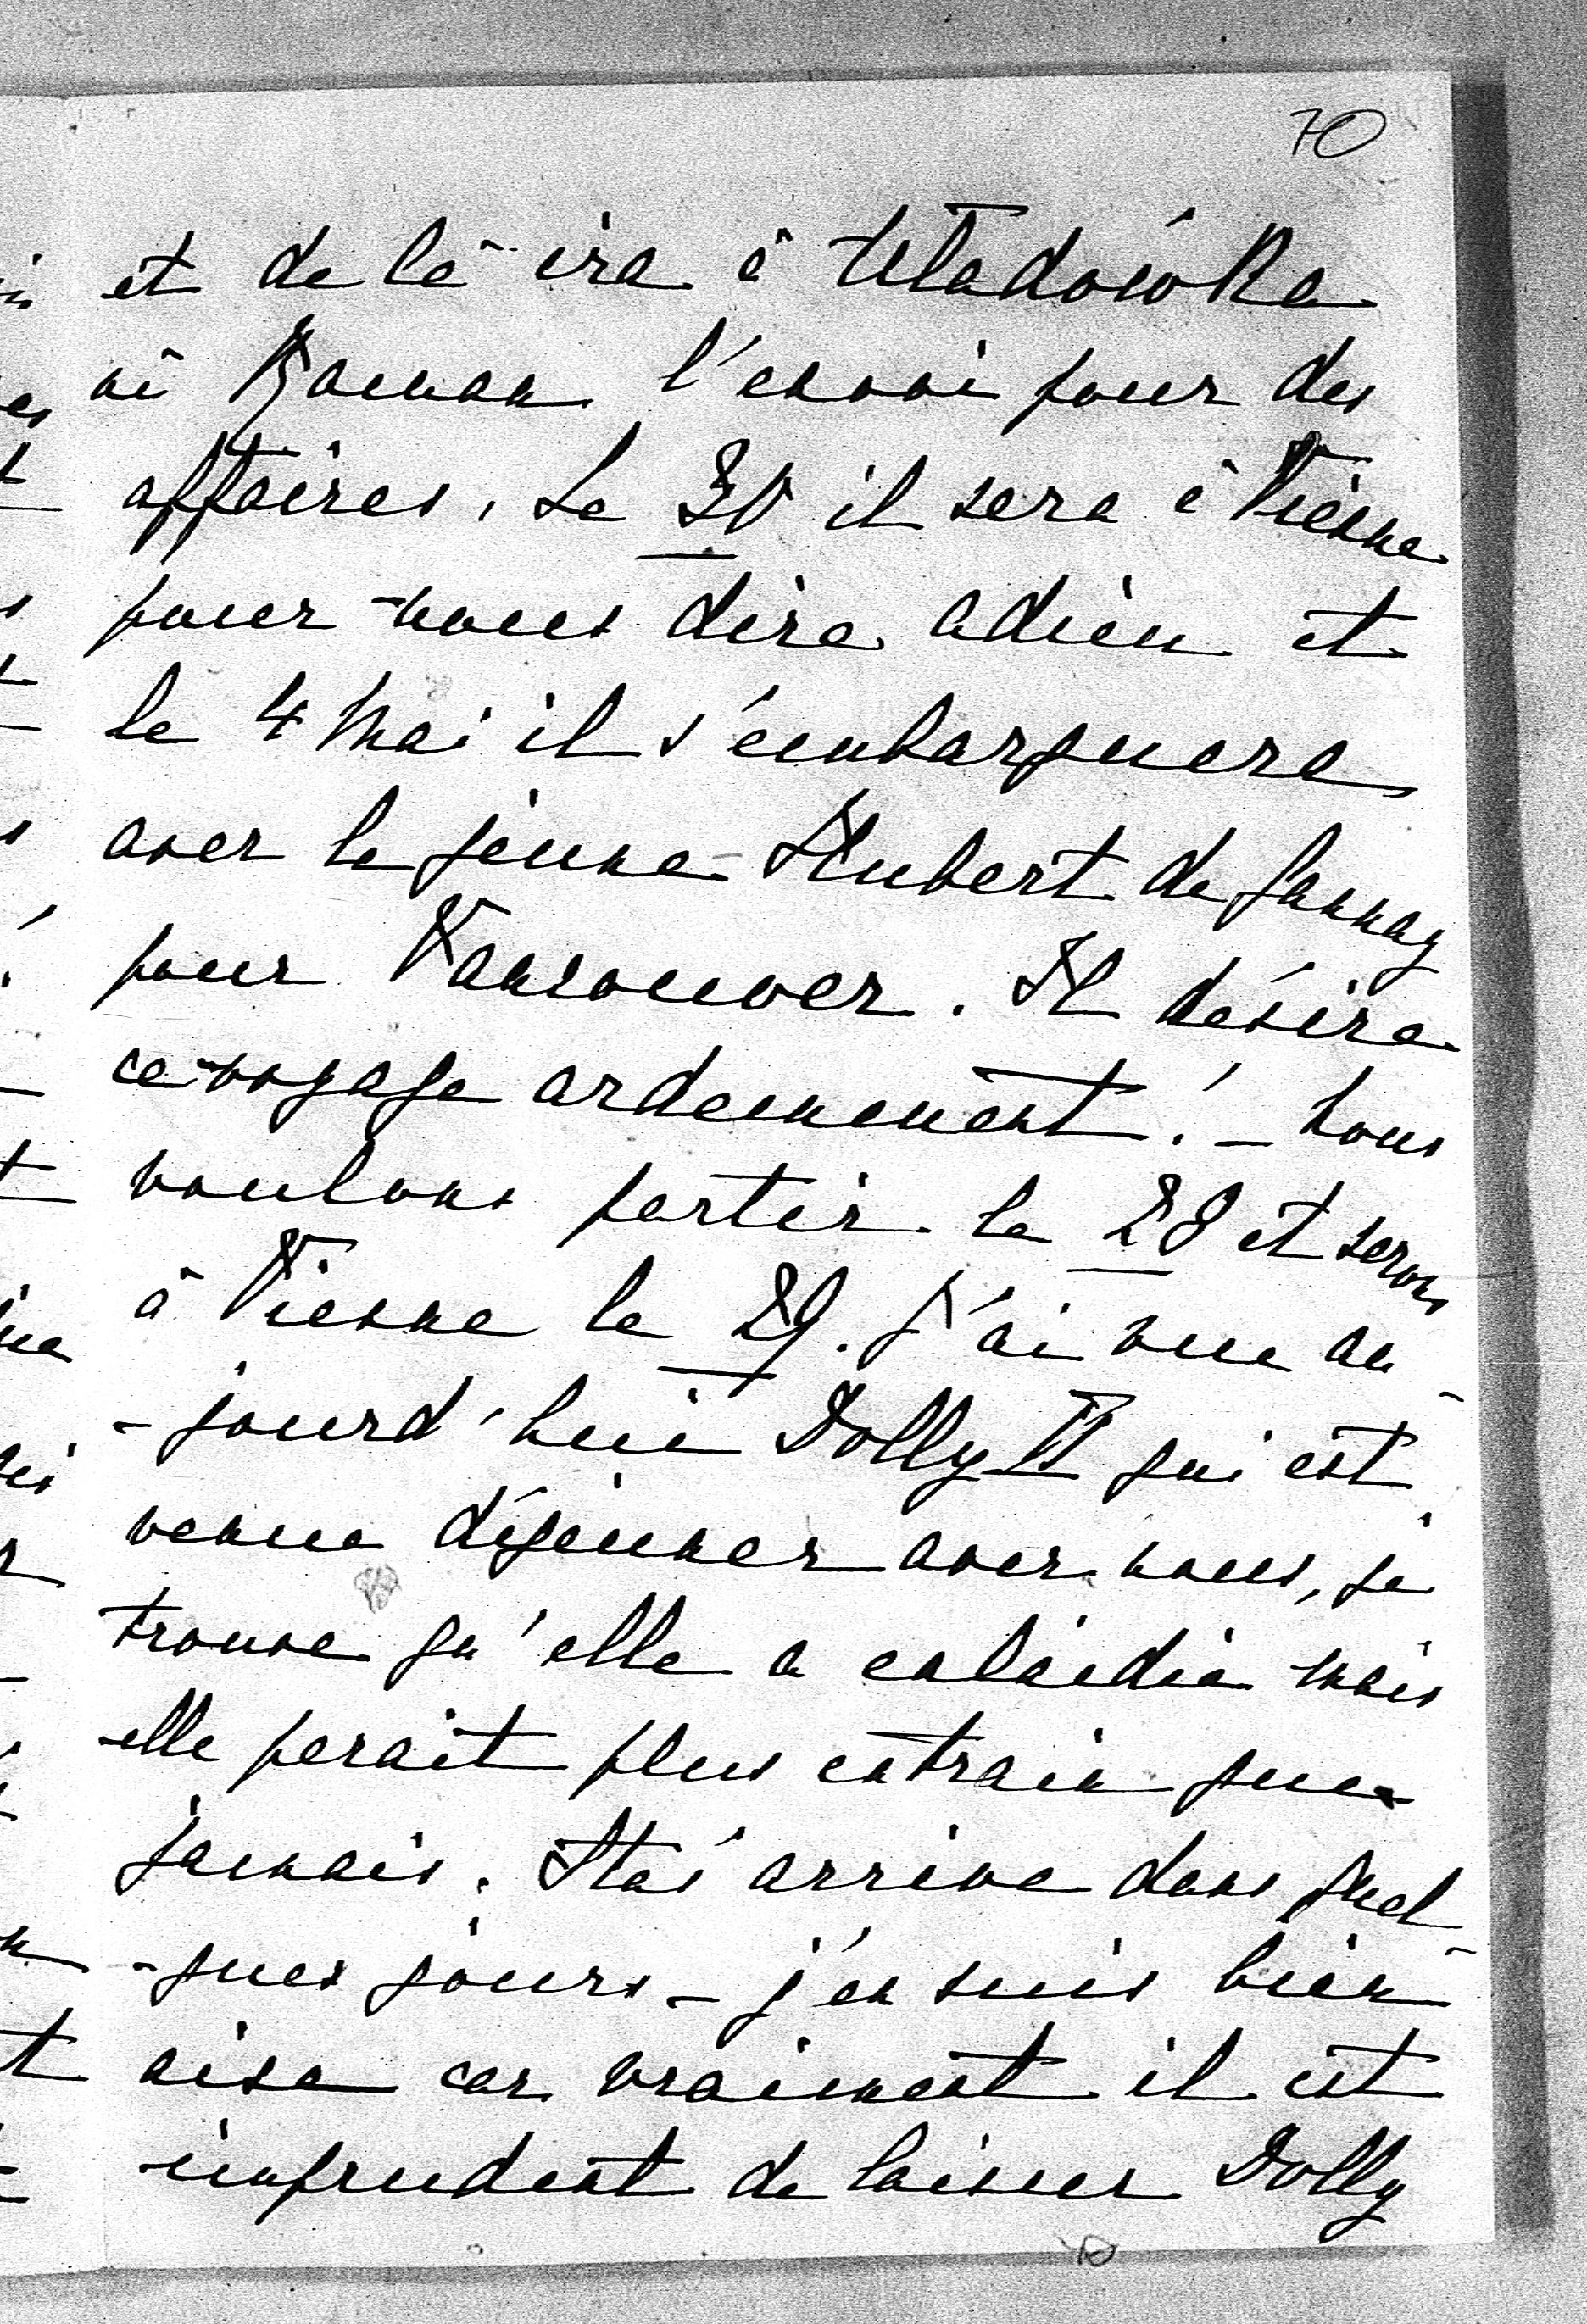 70
et de là ira à Uładówka
où Roman l'envoi pour des
affaires. Le 30 il sera à Vienne
pour nous dire adieu et
le 4 Mai il s'embarquera
avec le jeune Hubert de
pour Vancouver. Il désire
ce voyage ardemment! – Nous
voulons partir le 28 et serons
à Vienne le 29. J'ai vue au-
-jourd'hui Dolly II qui est
venue déjeuner avec nous, je
trouve qu'elle a enlaidie mais
elle perait plus entrain que
jamais. Staś arrive dans quel-
-ques jours – j'en suis bien
aise car vraiment il est
imprudent de laisser Dolly